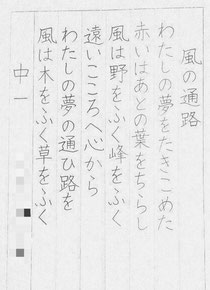 風の通路
わたしの夢をたきこめた
赤いはあとの葉をちらし
風は野をふく峰をふく
遠いこころへ心から
わたしの夢の通ひ路を
風は木をふく草をふく
中一